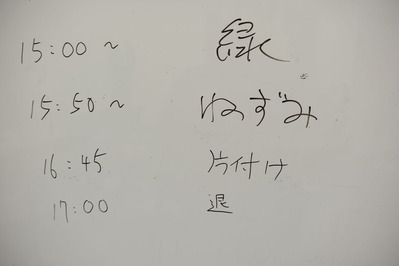 15:00～ 緑
15:50～ ねずみ
16:45 片付け
17:00 退